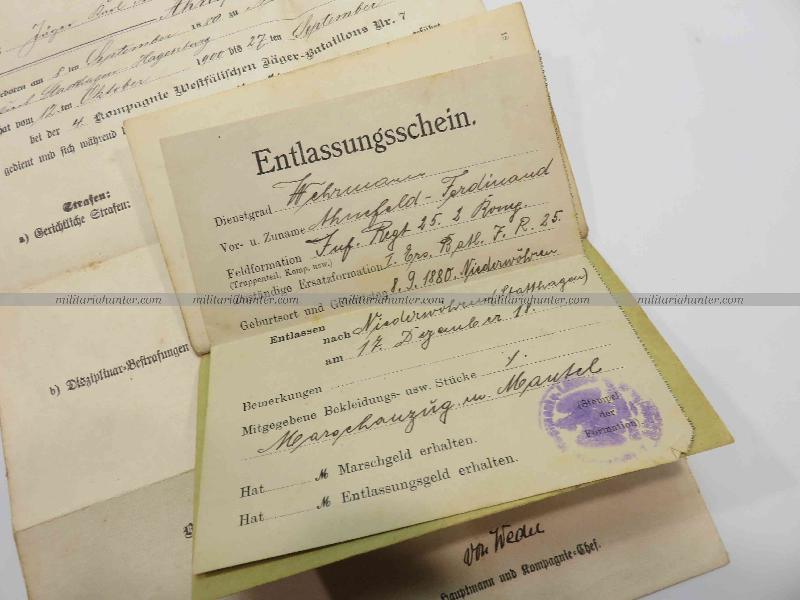 Jäger
geboren am 8 ten September 1880 zu
Stadthagen Hagenburg
hat vom 12 ten Oktober 1900 bis 27 ten September
bei der 4. Kompagnie Westfälischen Jäger-Bataillons Nr. 7
gedient und sich während
geführt
Strafen:
a) Gerichtliche Strafen:
b) Disziplinar-Bestrafungen
Entlassungsschein.
Dienstgrad Wehrmann
Vor- u. Zuname Ahnefeld-Ferdinand
Feldformation Inf. Regt 25. 2 Komp.
(Truppenteil, Komp. usw.)
Zuständige Ersatzformation I. Ers. Batl. J. R. 25.
Geburtsort und Geburtstag 8. 9. 1880. Niederwöhren
Entlassen nach Niederwöhren (Stadthagen)
am 17. Dezember 18.
Bemerkungen
Mitgegebene Bekleidungs- usw. Stücke 1.
Marschanzug u. Mantel
(Stempel
der
Formation)
Hat M Marschgeld erhalten.
Hat M Entlassungsgeld erhalten.
von Wedel
Hauptmann und Kompagnie-Chef.
militariahunter.com militariahunter.com militariahunter.com militariahunter.com militariahunter.com